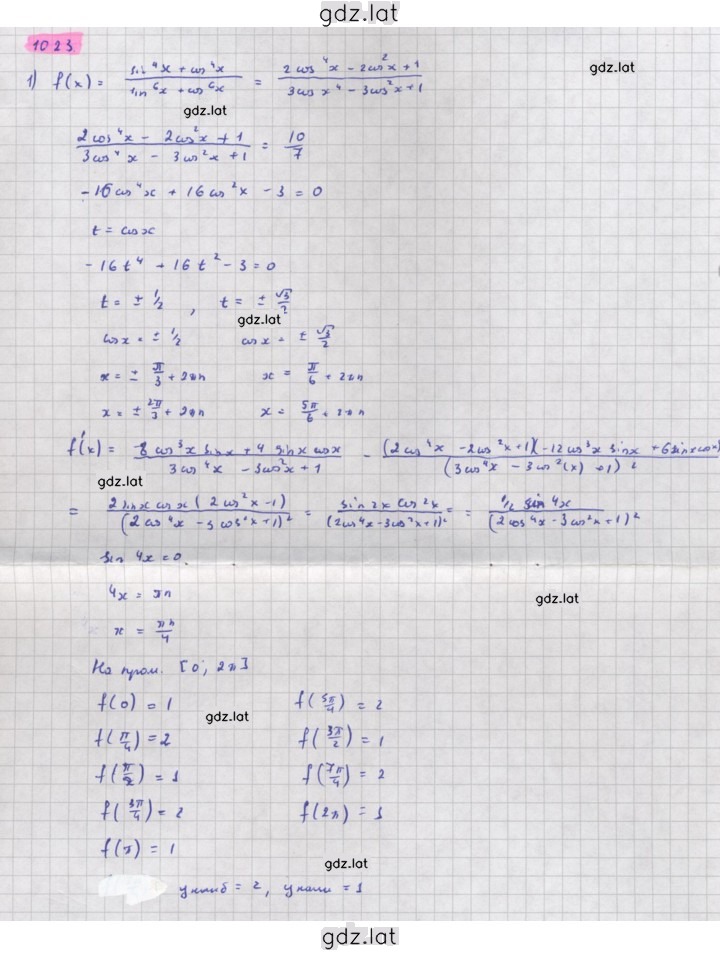 gdz.lat
1023
1) f(x) = (sin⁴x + cos⁴x)/(sin⁶x + cos⁶x) = (2cos⁴x - 2cos²x + 1)/(3cos x⁴ - 3cos²x + 1)
gdz.lat
gdz.lat
(2cos⁴x - 2cos²x + 1)/(3cos⁴x - 3cos²x + 1) = 10/7
-16cos⁴x + 16cos²x - 3 = 0
t = cosx
-16t⁴ + 16t² - 3 = 0
t = ± 1/2 , t = ± √3/2
gdz.lat
cosx = ± 1/2 cosx = ± √3/2
x = ± π/3 + 2πn x = π/6 + 2πn
x = ± 2π/3 + 2πn x = 5π/6 + 2πn
f'(x) = (8cos³x sinx + 4 sinx cosx)/(3cos⁴x - 3cos²x + 1) - ((2cos⁴x - 2cos²x + 1)(-12cos³x sinx + 6sinxcosx)/(3cos⁴x - 3cos²(x) + 1)²
gdz.lat
= 2sinx cosx(2cos²x - 1)/(2cos⁴x - 3cos²x + 1)² = sin2x cos2x/(2cos⁴x - 3cos²x + 1)² = = 1/2 sin4x/(2cos⁴x - 3cos²x + 1)²
sin 4x = 0
4x = πn
gdz.lat
x = πn/4
На пром. [0; 2π]
f(0) = 1 f(5π/4) = 2
gdz.lat
f(π/4) = 2 f(3π/2) = 1
f(π/2) = 1 f(7π/4) = 2
f(3π/4) = 2 f(2π) = 1
f(π) = 1
gdz.lat
y наиб = 2, y наим = 1
gdz.lat